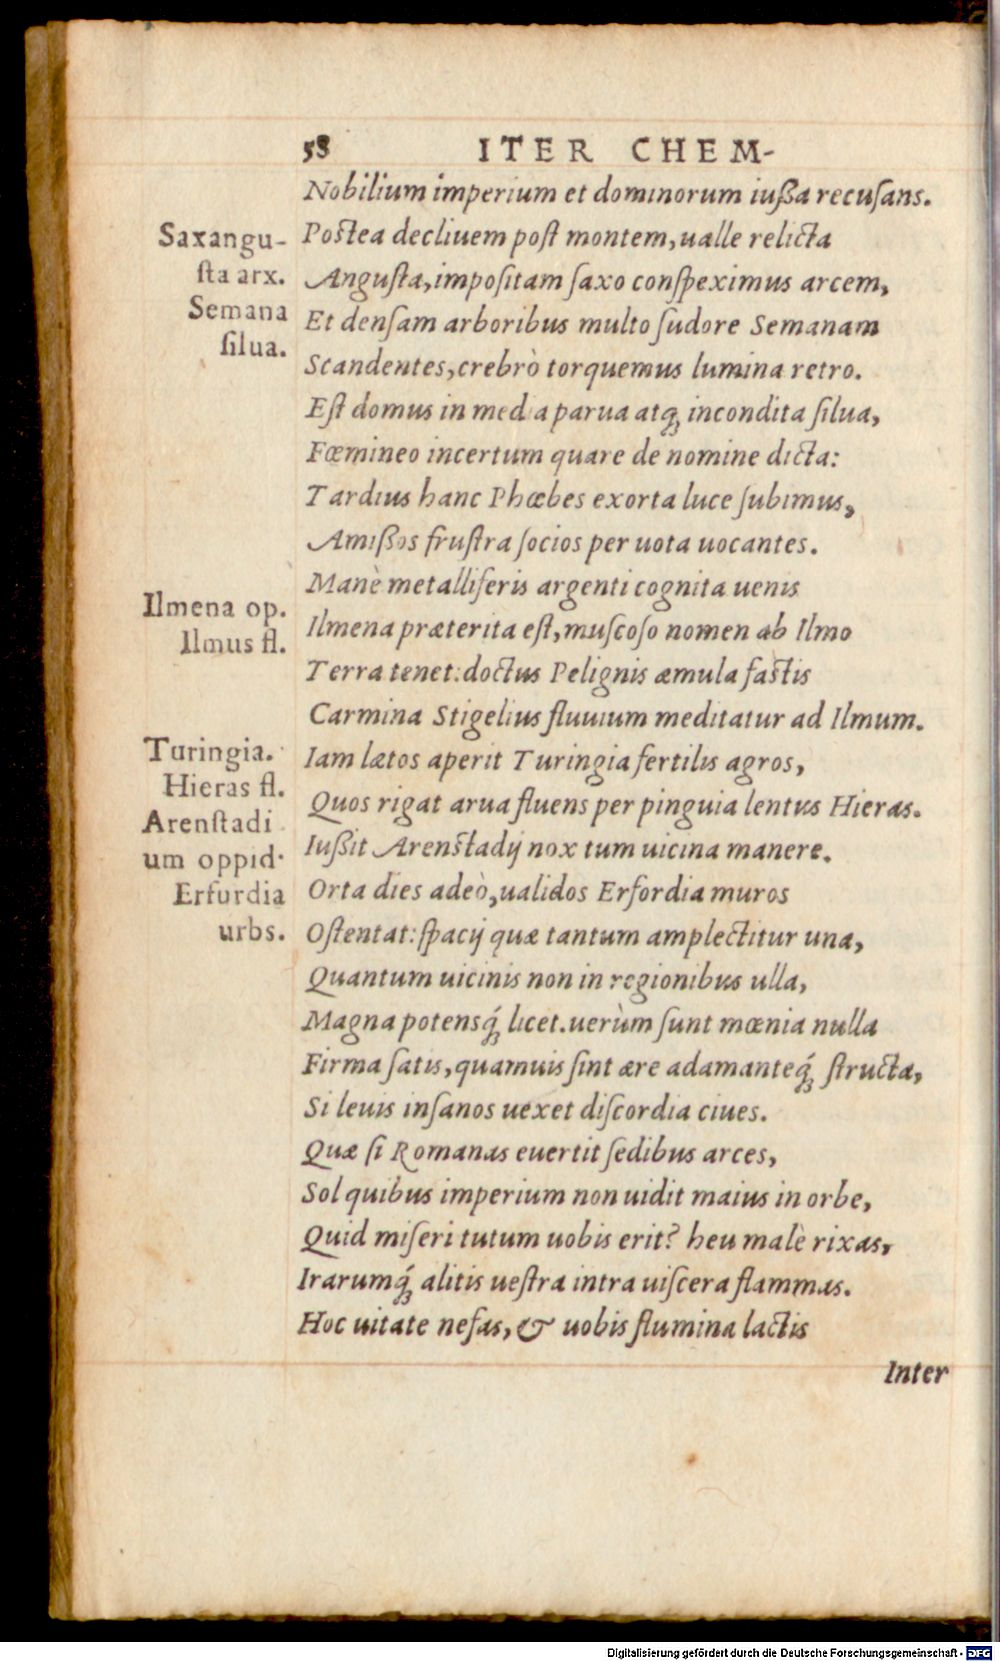 58 ITER CHEM-
Nobilium imperium et dominorum iußa recusans.
Saxangu-
sta arx.
Semana
silua.
Postea decliuem post montem, ualle relicta
Angusta, impositam saxo conspeximus arcem,
Et densam arboribus multo sudore Semanam
Scandentes, crebrò torquemus lumina retro.
Est domus in media parua atq; incondita silua,
Fœmineo incertum quare de nomine dicta:
Tardius hanc Phœbes exorta luce subimus,
Amißos frustra socios per uota uocantes.
Manè metalliferis argenti cognita uenis
Ilmena op.
Ilmus fl.
Ilmena præterita est, muscoso nomen ab Ilmo
Terra tenet: doctus Pelignis æmula fastis
Carmina Stigelius fluuium meditatur ad Ilmum.
Turingia.
Hieras fl.
Arenstadi
um oppid.
Erfurdia
urbs.
Iam lætos aperit Turingia fertilis agros,
Quos rigat arua fluens per pinguia lentus Hieras.
Iußit Arenstadij nox tum uicina manere.
Orta dies adeò, ualidos Erfordia muros
Ostentat: spacij quæ tantum amplectitur una,
Quantum uicinis non in regionibus ulla,
Magna potensq́; licet. uerùm sunt mœnia nulla
Firma satis, quamuis sint ære adamanteq́; structa,
Si leuis insanos uexet discordia ciues.
Quæ si Romanas euertit sedibus arces,
Sol quibus imperium non uidit maius in orbe,
Quid miseri tutum uobis erit? heu malè rixas,
Irarumq́; alitis uestra intra uiscera flammas.
Hoc uitate nefas, & uobis flumina lactis
Inter
Digitalisierung gefördert durch die Deutsche Forschungsgemeinschaft - DFG